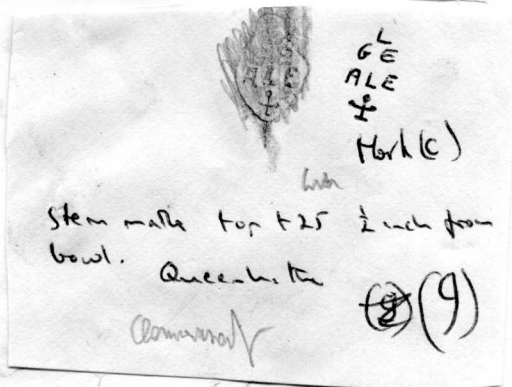 L
GE
ALE
L
G E
ALE
Mark (C)
Stem marks top ½ inch from
bowl.
Queenhithe
(9)